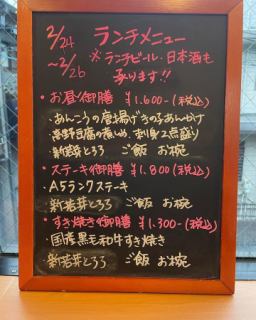 2/24
~2/26
ランチメニュー
※ランチビール・日本酒も
承ります!!
・お昼御膳 ¥1.600-(税込)
・あんこうの唐揚げきの子あんかけ
・高野豆腐の煮しめ、お刺身2点盛り
・新若芽とろろ ご飯 お椀
・ステーキ御膳 ¥1.800(税込)
・A5ランクステーキ
・新若芽とろろ ご飯 お椀
・すき焼き御膳 ¥1.300-(税込)
・国産黒毛和牛すき焼き
新若芽とろろ ご飯 お椀